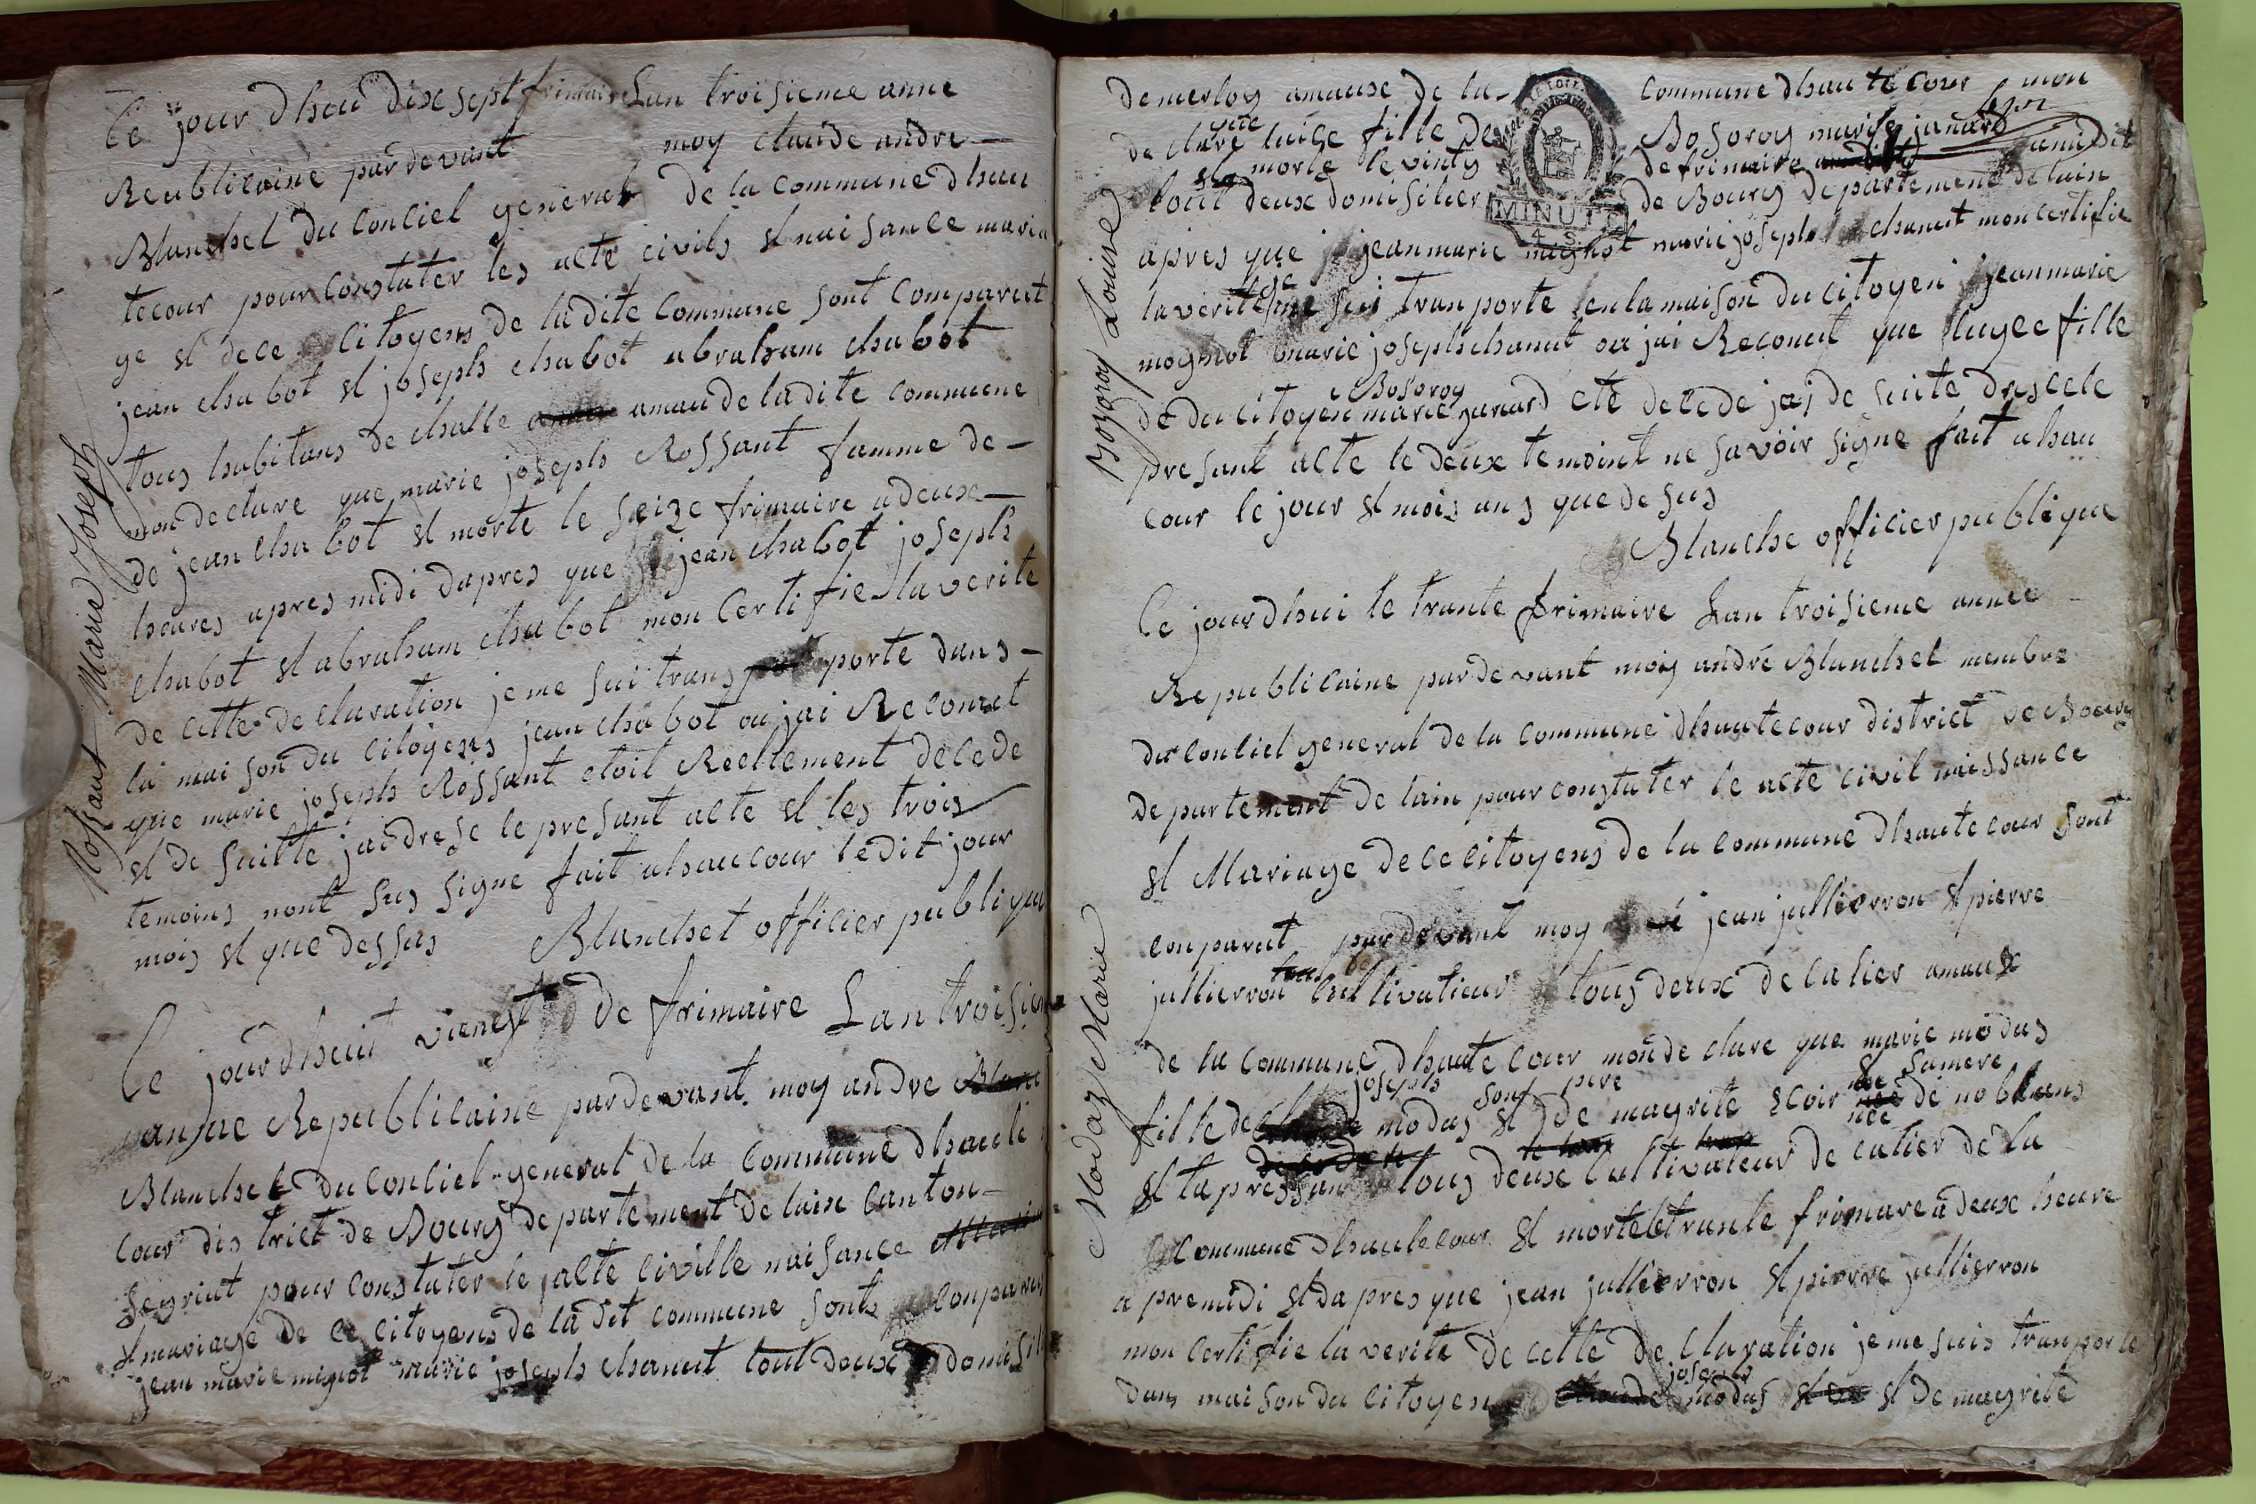 Ce jour dheu dix sept frimaire Lan troisieme anne
Reublicaine pardevant moy claude andre
Blanchet du Conciel general de la commune dhau
tecour pour constater les acte civils et naisance maria
ge et dece citoyens de ladite commune sont comparut
jean chabot et joseph chabot abraham chabot
tous habitans de challe amau de ladite commune
mon declare que marie joseph Rossant famme de
de jean chabot et morte le seize frimaire a deux
heures apres midi dapres que jean chabot joseph
chabot et abraham chabot mon certifie la verite
de cette declaration je me sui trans porte dans
la mai son du citoyens jean chabot ou jai Reconut
que marie joseph Rossant etoit Reellement decede
et de suitte jai drese le presant acte et les trois
temoins nont sus signe fait a haucour ledit jour
mois et que dessus Blanchet officier publique
Rossant Marie Joseph
Ce jourdheui vienst de frimaire Lan troisiem
annee Republicaine pardevant moy andre
Blanchet du Conciel general de la commune dhaute
cour district de Bourg departement de lain canton
Seyriat pour constater le acte civille naisance
et mariage de ce citoyens de la dit commune sonts conparut
jean marie mignot marie joseph chanut tout deux domisili
de merloy amaux de la commune dhautecour mon
declare luice fille de Bosoroy marie janard
et morte le vinty de frimaire a midit
tout deux domisilier de Bourg departement de lain
apres que jean marie mignot marie joseph chanut mon certifie
la verite je me sui tranporte en la maison du citoyen jean marie
mognot marie joseph chanut ou jai Reconut que luyce fille
Bosoroy
de du citoyen marie janard ete decede jai de suite drescele
presant acte le deux temoint ne savoir signe fait a hau
cour le jour et mois ans que de sus
Blanche officier publique
Bozoroy Louise
Ce jourdhui le trante frimaire Lan troisieme annee
Republicaine pardevant moy andré Blanchet membre
du Conciel general de la commune dhautecour district de Bourg
departement de lain pour constater le acte civil naissance
et Mariage de ce citoyens de la commune dhautecour sont
conparut pardevant moy jean jullierron et pierre
jullierron cultivatieur tous deux de calier amaux
de la commune dhaute cour mon declare que marie modas
joseph son pere et samere
fille de modas et de magrite scoir née de noblans
et la pressan tous deux cultivateur de calier de la
commune dhautecour et morte le trante frimare a deux heure
a premidi et da pres que jean jullierron et pierre jullierron
mon certifie la verite de cette declaration je me suis tranporte
joseph
dans mai son du citoyen modas et de magrite
Modaz Marie
MINUTE
4 S.